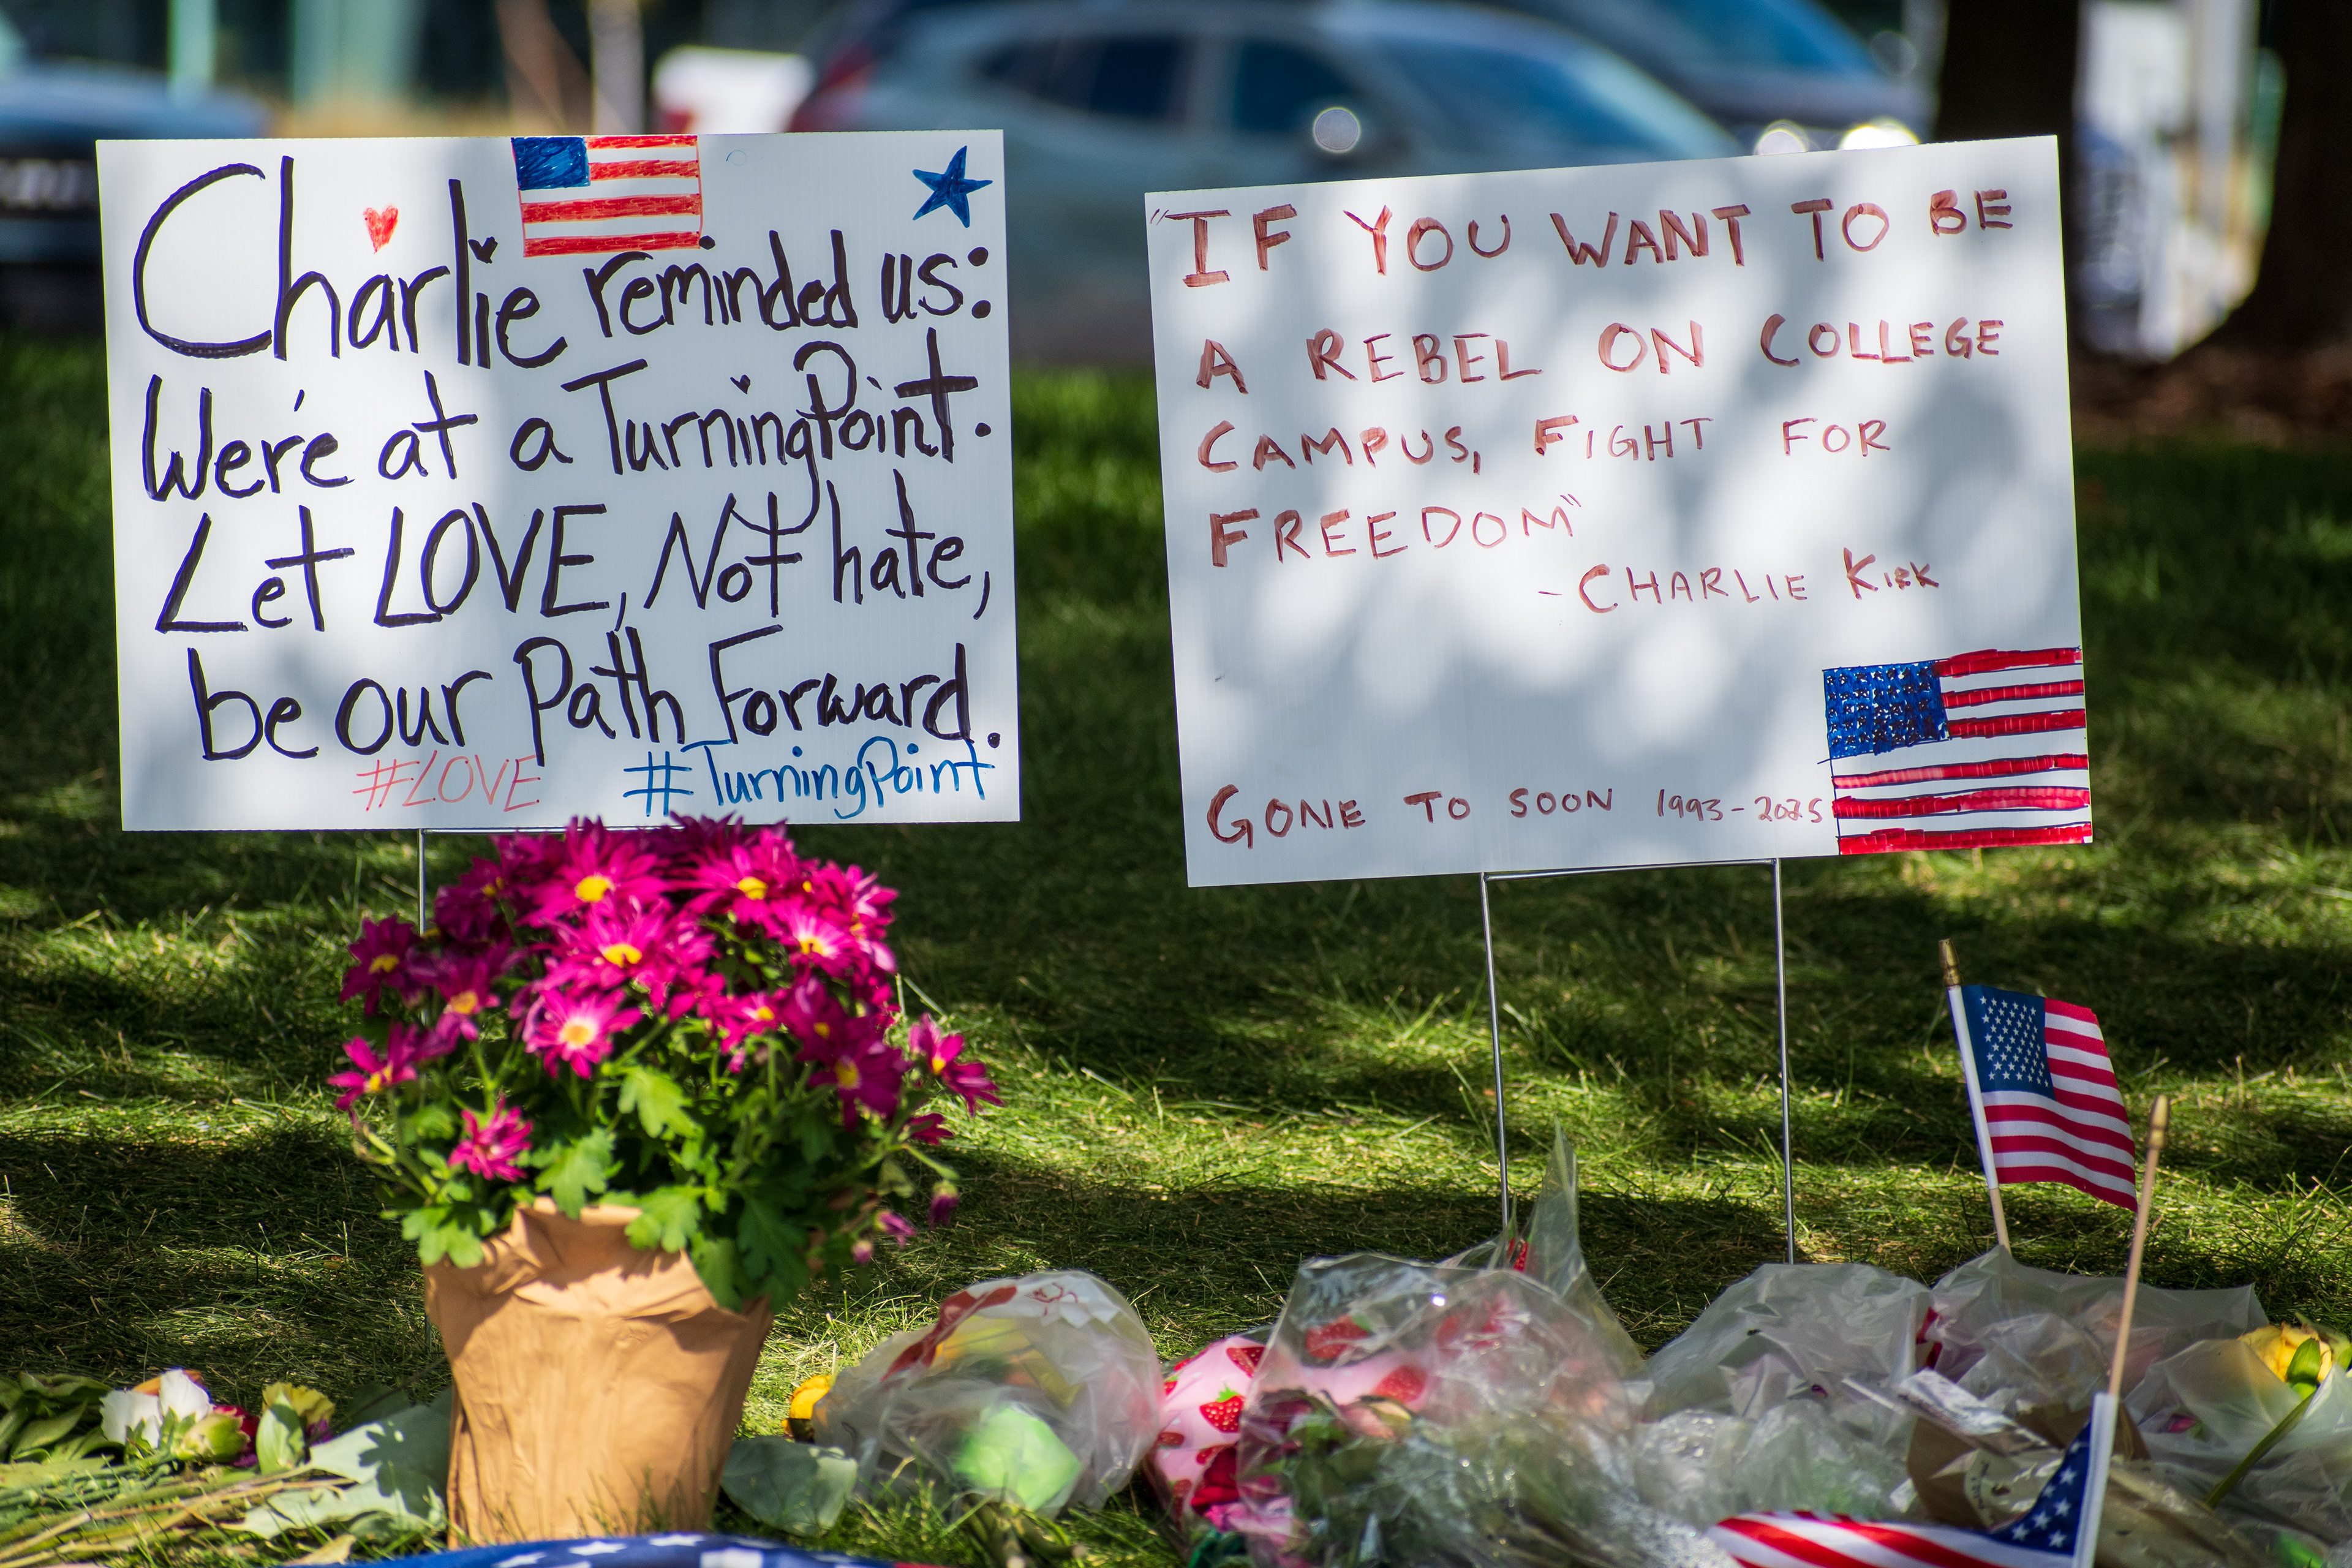 Charlie reminded us:
We're at a TurningPoint.
Let LOVE, Not hate,
be our Path Forward.
#LOVE #TurningPoint
"IF YOU WANT TO BE
A REBEL ON COLLEGE
CAMPUS, FIGHT FOR
FREEDOM"
- CHARLIE KIRK
GONE TO SOON 1993-2025